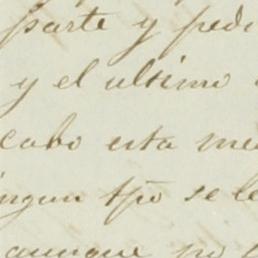 parte y pedi
y el ultimo
cabo esta me
ingun tpo se le
aunque no